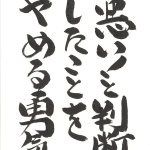 悪いと判断
したことを
やめる勇気